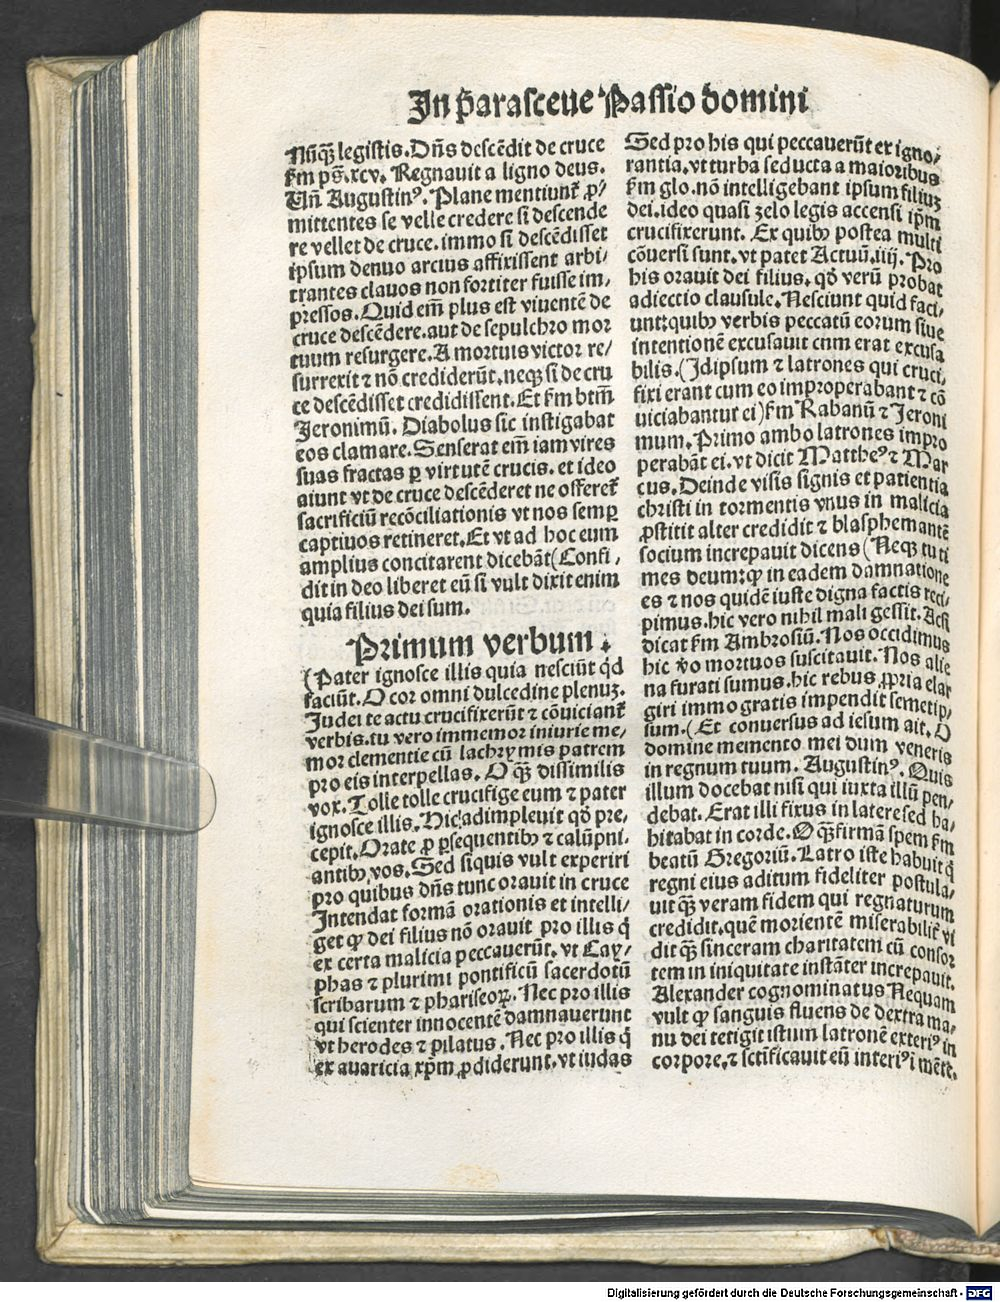 In parasceue Passio domini
Nūqꝫ legistis. Dn̄s descēdit de cruce
ẜm ps̄. xcv. Regnauit a ligno deus.
Un̄ Augustinꝰ. Plane mentiunt᷑ ꝓ/
mittentes se velle credere si descende
re vellet de cruce. immo si descēdisset
ipsum denuo arcius affixissent arbi/
trantes clauos non fortiter fuisse im/
pressos. Quid em̄ plus est viuentē de
cruce descēdere. aut de sepulchro mor
tuum resurgere. A mortuis victor re/
surrexit ⁊ nō crediderūt. neqꝫ si de cru
ce descēdisset credidissent. Et ẜm btm̄
Jeronimū. Diabolus sic instigabat
eos clamare. Senserat em̄ iam vires
suas fractas ꝑ virtutē crucis. et ideo
aiunt vt de cruce descēderet ne offeret᷑
sacrificiū recōciliationis vt nos semꝑ
captiuos retineret. Et vt ad hoc eum
amplius concitarent dicebāt (Confi/
dit in deo liberet eū si vult dixit enim
quia filius dei sum.
Primum verbum.
(Pater ignosce illis quia nesciūt qd̄
faciūt. O cor omni dulcedine plenuꝫ.
Judei te actu crucifixerūt ⁊ cōuiciant᷑
verbis. tu vero immemor iniurie me/
mor clementie cū lachrymis patrem
pro eis interpellas. O qꝫ̄ dissimilis
vox. Tolle tolle crucifige eum ⁊ pater
ignosce illis. Hic adimpleuit qd̄ pre/
cepit. Orate ꝓ ꝑsequentibꝫ ⁊ calūpni/
antibꝫ vos. Sed siquis vult experiri
pro quibus dn̄s tunc orauit in cruce
Intendat formā orationis et intelli/
get ꝙ dei filius nō orauit pro illis q̄
ex certa malicia peccauerūt. vt Cay/
phas ⁊ plurimi pontificū sacerdotū
scribarum ⁊ phariseoꝝ. Nec pro illis
qui scienter innocentē damnauerunt
vt herodes ⁊ pilatus. Nec pro illis q̄
ex auaricia xp̄m ꝓdiderunt. vt iudas
Sed pro his qui peccauerūt ex igno/
rantia. vt turba seducta a maioribus
ẜm glo. nō intelligebant ipsum filiuꝫ
dei. ideo quasi zelo legis accensi ip̄m
crucifixerunt. Ex quibꝫ postea multi
cōuersi sunt. vt patet Actuū. iiij. Pro
his orauit dei filius. qd̄ verū probat
adiectio clausule. Nesciunt quid faci/
unt: quibꝫ verbis peccatū eorum siue
intentionē excusauit cnm erat excusa
bilis. (Idipsum ⁊ latrones qui cruci/
fixi erant cum eo improperabant ⁊ cō
uiciabantur ei) ẜm Rabanū ⁊ Jeroni
mum. Primo ambo latrones impro
perabāt ei. vt dicit Mattheꝰ ⁊ Mar
cus. Deinde visis signis et patientia
christi in tormentis vnus in malicia
ꝑstitit alter credidit ⁊ blasphemantē
socium increpauit dicens (Neqꝫ tu ti
mes deum: ꝙ in eadem damnatione
es ⁊ nos quidē iuste digna factis reci/
pimus. hic vero nihil mali gessit. Acsi
dicat ẜm Ambrosiū. Nos occidimus
hic v̄o mortuos suscitauit. Nos alie
na furati sumus. hic rebus ꝓpria elar
giri immo gratis impendit semetip/
sum. (Et conuersus ad iesum ait. O
domine memento mei dum veneris
in regnum tuum. Augustinꝰ. Quis
illum docebat nisi qui iuxta illū pen/
debat. Erat illi fixus in latere sed ha/
bitabat in corde. O qꝫ̄ firmā spem ẜm
beatū Gregoriū. Latro iste habuit q̄
regni eius aditum fideliter postula/
uit qꝫ̄ veram fidem qui regnaturum
credidit. quē morientē miserabilit᷑ vi
dit qꝫ̄ sinceram charitatem cū consor
tem in iniquitate instāter increpauit.
Alexander cognominatus Nequam
vult ꝙ sanguis fluens de dextra ma/
nu dei tetigit istum latronē exteriꝰ in
corpore. ⁊ sctificauit eū interiꝰ i mēte.
Digitalisierung gefördert durch die Deutsche Forschungsgemeinschaft - DFG